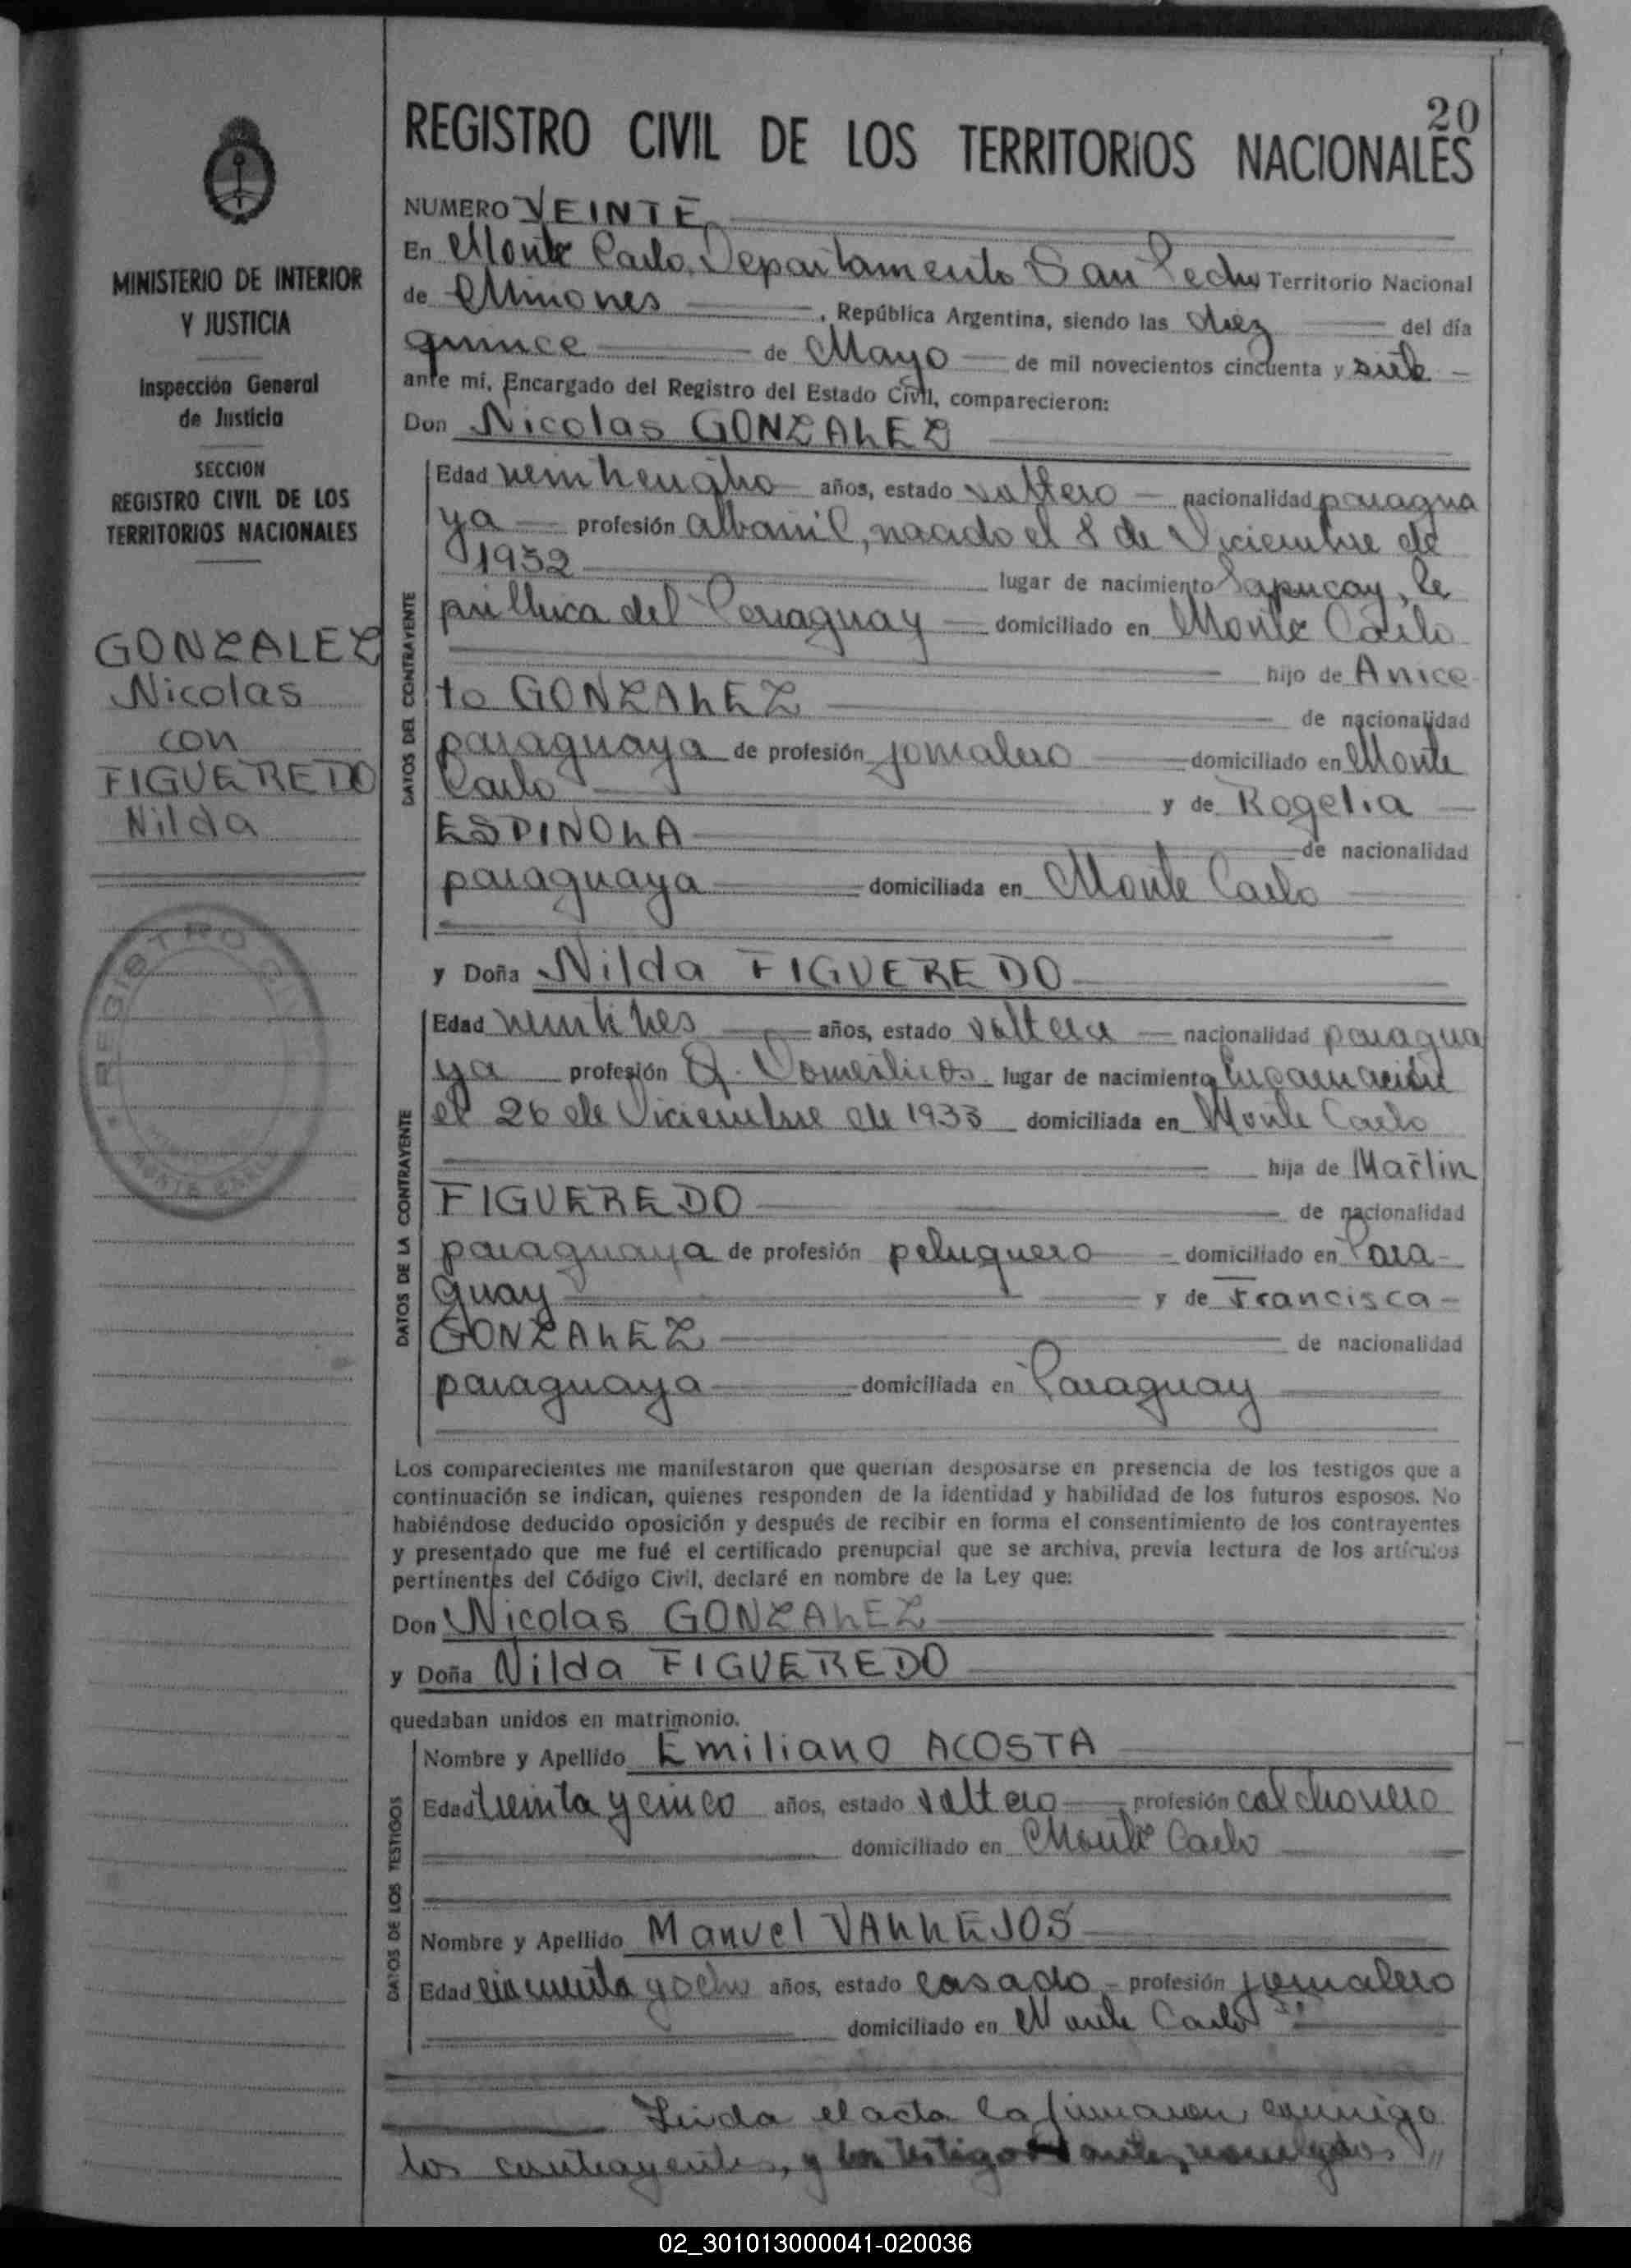 20
REGISTRO CIVIL DE LOS TERRITORIOS NACIONALES
MINISTERIO DE INTERIOR
Y JUSTICIA
Inspección General
de Justicia
SECCION
REGISTRO CIVIL DE LOS
TERRITORIOS NACIONALES
GONZALEZ
Nicolas
con
FIGUEREDO
Nilda
REGISTRO CIVIL
MONTE CARLO
NUMERO VEINTE
En Monte Carlo, Departamento San Pedro Territorio Nacional
de Misiones, República Argentina, siendo las diez del día
quince de Mayo de mil novecientos cincuenta y siete
ante mí, Encargado del Registro del Estado Civil, comparecieron:
Don Nicolas GONZALEZ
DATOS DEL CONTRAYENTE
Edad años, estado soltero nacionalidad paragua
ya profesión albañil, nacido el 8 de Diciembre de
1932 lugar de nacimiento Sapucay, Re
pública del Paraguay domiciliado en Monte Carlo
hijo de Anice
to GONZALEZ de nacionalidad
paraguaya de profesión jornalero domiciliado en Monte
Carlo y de Rogelia
ESPINOLA de nacionalidad
paraguaya domiciliada en Monte Carlo
y Doña Nilda FIGUEREDO
DATOS DE LA CONTRAYENTE
Edad veintitres años, estado soltera nacionalidad paragua
ya profesión Q. Domesticos lugar de nacimiento Encarnación
el 26 de Diciembre de 1933 domiciliada en Monte Carlo
hija de Martin
FIGUEREDO de nacionalidad
paraguaya de profesión peluquero domiciliado en Para-
guay y de Francisca
GONZALEZ de nacionalidad
paraguaya domiciliada en Paraguay
Los comparecientes me manifestaron que querían desposarse en presencia de los testigos que a
continuación se indican, quienes responden de la identidad y habilidad de los futuros esposos. No
habiéndose deducido oposición y después de recibir en forma el consentimiento de los contrayentes
y presentado que me fué el certificado prenupcial que se archiva, previa lectura de los artículos
pertinentes del Código Civil, declaré en nombre de la Ley que:
Don Nicolas GONZALEZ
y Doña Nilda FIGUEREDO
quedaban unidos en matrimonio.
DATOS DE LOS TESTIGOS
Nombre y Apellido Emiliano ACOSTA
Edad treinta y cinco años, estado soltero profesión colchonero
domiciliado en Monte Carlo
Nombre y Apellido Manuel VALLEJOS
Edad cincuenta y ocho años, estado casado profesión jornalero
domiciliado en Monte Carlo
Leida el acta la firmaron conmigo
los contrayentes, y los testigos antes
02_301013000041-020036